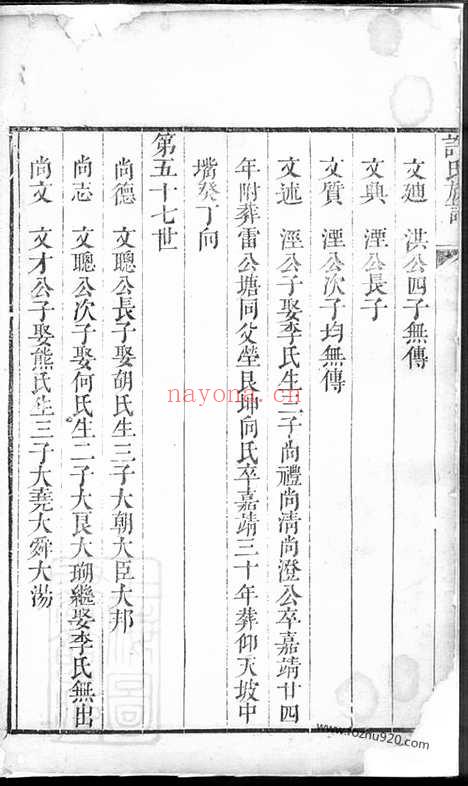 許氏族譜
文廸　洪公四子無傳
文典　湮公長子
文質　湮公次子均無傳
文述　淫公子娶李氏生三子尚禮尚清尚澄公卒嘉靖廿四
年附葬雷公塘同父塋艮坤向氏卒嘉靖三十年葬仰天坡中
嘴癸丁向
第五十七世
尚德　文聰公長子娶胡氏生三子大朝大臣大邦
尚志　文聰公次子娶何氏生二子大良大瑚繼娶李氏無出
尚文　文才公子娶熊氏生三子大堯大舜大湯
nayona.cn
www.fozhu920.com